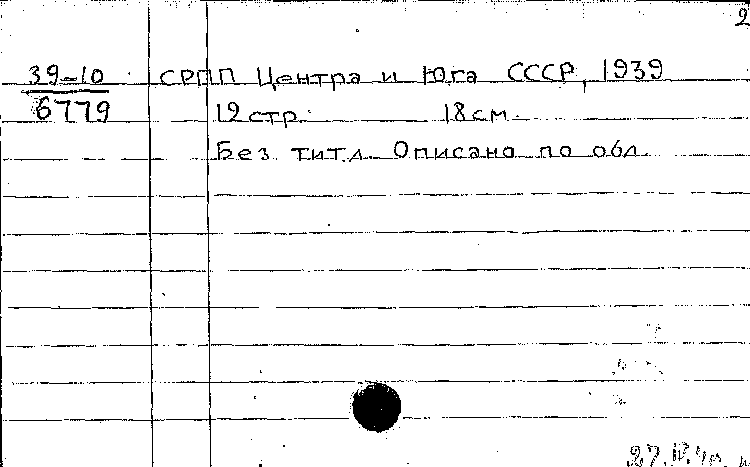 2
39-10 СРПП Центра и Юга СССР, 1939
6779 12 стр. 18 см.
Без тит.л. Описано по обл.